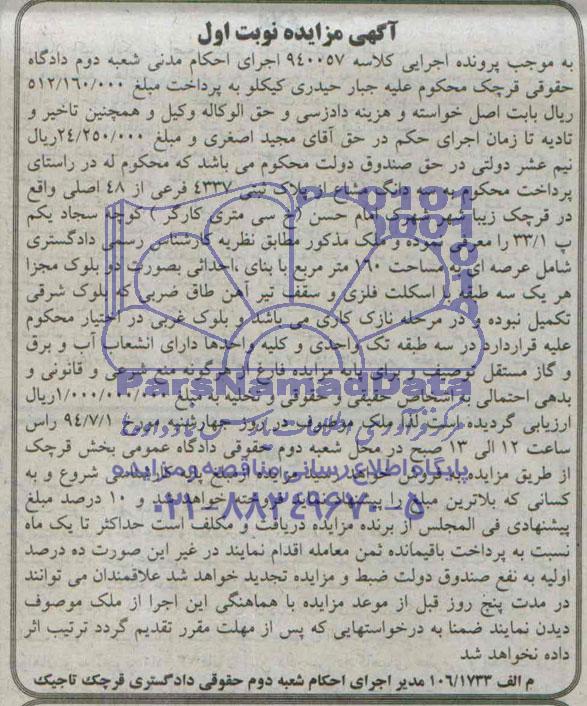 آگهی مزایده نوبت اول
به موجب پرونده اجرایی کلاسه ۹۴۰۰۵۷ اجرای احکام مدنی شعبه دوم دادگاه
حقوقی قرچک محکوم علیه جبار حیدری کیکلو به پرداخت مبلغ ۵۱۲/۱۶۰/۰۰۰
ریال بابت اصل خواسته و هزینه دادرسی و حق الوکاله وکیل و همچنین تاخیر و
تادیه تا زمان اجرای حکم در حق آقای مجید اصغری و مبلغ ۲۴/۲۵۰/۰۰۰ریال
نیم عشر دولتی در حق صندوق دولت محکوم می باشد که محکوم له در راستای
پرداخت محکوم به سه دانگ مشاع از پلاک ثبتی ۴۳۳۷ فرعی از ۴۸ اصلی واقع
در قرچک زیباشهر شهرک امام حسن (خ سی متری کارگر) کوچه سجاد یکم
پ ۳۳/۱ را معرفی نموده و ملک مذکور مطابق نظریه کارشناس رسمی دادگستری
شامل عرصه ای به مساحت ۱۶۰ متر مربع با بنای احداثی بصورت دو بلوک مجزا
هر یک سه طبقه با اسکلت فلزی و سقف تیر آهن طاق ضربی که بلوک شرقی
تکمیل نبوده و در مرحله نازک کاری می باشد و بلوک غربی در اختیار محکوم
علیه قراردارد در سه طبقه تک واحدی و کلیه واحدها دارای انشعاب آب و برق
و گاز مستقل توصیف و برای پایه مزایده فارغ از هرگونه منع شرعی و قانونی و
بدهی احتمالی به اشخاص حقیقی و حقوقی و تخلیه به مبلغ ۱/۰۰۰/۰۰۰/۰۰۰ریال
ارزیابی گردیده است لذا ملک موصوف در روز چهارشنبه مورخ ۹۴/۷/۱ راس
ساعت ۱۲ الی ۱۳ صبح در محل شعبه دوم حقوقی دادگاه عمومی بخش قرچک
از طریق مزایده به فروش خواهد رسید مزایده از مبلغ پایه کارشناسی شروع و به
کسانی که بالاترین مبلغ را پیشنهاد نمایند فروخته خواهد شد و ۱۰ درصد مبلغ
پیشنهادی فی المجلس از برنده مزایده دریافت و مکلف است حداکثر تا یک ماه
نسبت به پرداخت باقیمانده ثمن معامله اقدام نمایند در غیر این صورت ده درصد
اولیه به نفع صندوق دولت ضبط و مزایده تجدید خواهد شد علاقمندان می توانند
در مدت پنج روز قبل از موعد مزایده با هماهنگی این اجرا از ملک موصوف
دیدن نمایند ضمنا به درخواستهایی که پس از مهلت مقرر تقدیم گردد ترتیب اثر
داده نخواهد شد
م الف ۱۰۶/۱۷۳۳ مدیر اجرای احکام شعبه دوم حقوقی دادگستری قرچک تاجیک
ParsNamadData
پایگاه اطلاع رسانی مناقصه و مزایده
۰۲۱-۸۸۳۴۹۶۷۰-۵